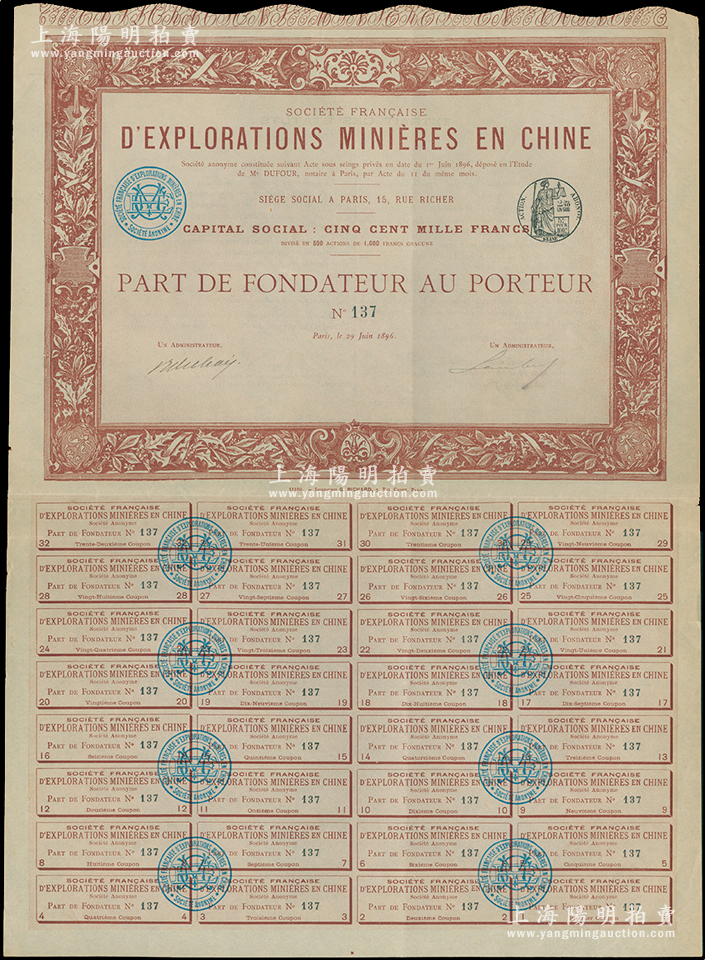 上海陽明拍賣
www.yangmingauction.com
SOCIÉTÉ FRANÇAISE
D'EXPLORATIONS MINIÈRES EN CHINE
Société anonyme constituée suivant Acte sous seings privés en date du 1er Juin 1896, déposé en l'Etude
de Me DUFOUR, notaire à Paris, par Acte du 11 du même mois.
SOCIÉTÉ FRANÇAISE D'EXPLORATIONS MINIÈRES EN CHINE
SOCIÉTÉ ANONYME
SIÈGE SOCIAL A PARIS, 15, RUE RICHER
ACTION ABONNT
CAPITAL SOCIAL : CINQ CENT MILLE FRANCS
DIVISÉ EN 500 ACTIONS DE 1,000 FRANCS CHACUNE
PART DE FONDATEUR AU PORTEUR
No 137
Paris, le 29 Juin 1896.
UN ADMINISTRATEUR, UN ADMINISTRATEUR,
上海陽明拍賣
www.yangmingauction.com
SOCIÉTÉ FRANÇAISE SOCIÉTÉ FRANÇAISE SOCIÉTÉ FRANÇAISE SOCIÉTÉ FRANÇAISE
D'EXPLORATIONS MINIÈRES EN CHINE D'EXPLORATIONS MINIÈRES EN CHINE D'EXPLORATIONS MINIÈRES EN CHINE D'EXPLORATIONS MINIÈRES EN CHINE
Société Anonyme Société Anonyme Société Anonyme Société Anonyme
PART DE FONDATEUR No 137 PART DE FONDATEUR No 137 PART DE FONDATEUR No 137 PART DE FONDATEUR No 137
32 Trente-Deuxième Coupon Trente-Unième Coupon 31 30 Trentième Coupon Vingt-Neuvième Coupon 29
SOCIÉTÉ FRANÇAISE SOCIÉTÉ FRANÇAISE SOCIÉTÉ FRANÇAISE SOCIÉTÉ FRANÇAISE
D'EXPLORATIONS MINIÈRES EN CHINE D'EXPLORATIONS MINIÈRES EN CHINE D'EXPLORATIONS MINIÈRES EN CHINE D'EXPLORATIONS MINIÈRES EN CHINE
Société Anonyme Société Anonyme Société Anonyme Société Anonyme
PART DE FONDATEUR No 137 PART DE FONDATEUR No 137 PART DE FONDATEUR No 137 PART DE FONDATEUR No 137
28 Vingt-Huitième Coupon 28 27 Vingt-Septième Coupon 27 26 Vingt-Sixième Coupon 26 25 Vingt-Cinquième Coupon 25
SOCIÉTÉ FRANÇAISE SOCIÉTÉ FRANÇAISE SOCIÉTÉ FRANÇAISE SOCIÉTÉ FRANÇAISE
D'EXPLORATIONS MINIÈRES EN CHINE D'EXPLORATIONS MINIÈRES EN CHINE D'EXPLORATIONS MINIÈRES EN CHINE D'EXPLORATIONS MINIÈRES EN CHINE
Société Anonyme Société Anonyme Société Anonyme Société Anonyme
PART DE FONDATEUR No 137 PART DE FONDATEUR No 137 PART DE FONDATEUR No 137 PART DE FONDATEUR No 137
24 Vingt-Quatrième Coupon Vingt-Troisième Coupon 23 22 Vingt-Deuxième Coupon Vingt-Unième Coupon 21
SOCIÉTÉ FRANÇAISE SOCIÉTÉ FRANÇAISE SOCIÉTÉ FRANÇAISE SOCIÉTÉ FRANÇAISE
D'EXPLORATIONS MINIÈRES EN CHINE D'EXPLORATIONS MINIÈRES EN CHINE D'EXPLORATIONS MINIÈRES EN CHINE D'EXPLORATIONS MINIÈRES EN CHINE
Société Anonyme Société Anonyme Société Anonyme Société Anonyme
PART DE FONDATEUR No 137 PART DE FONDATEUR No 137 PART DE FONDATEUR No 137 PART DE FONDATEUR No 137
20 Vingtième Coupon 20 19 Dix-Neuvième Coupon 19 18 Dix-Huitième Coupon 18 17 Dix-Septième Coupon 17
SOCIÉTÉ FRANÇAISE SOCIÉTÉ FRANÇAISE SOCIÉTÉ FRANÇAISE SOCIÉTÉ FRANÇAISE
D'EXPLORATIONS MINIÈRES EN CHINE D'EXPLORATIONS MINIÈRES EN CHINE D'EXPLORATIONS MINIÈRES EN CHINE D'EXPLORATIONS MINIÈRES EN CHINE
Société Anonyme Société Anonyme Société Anonyme Société Anonyme
PART DE FONDATEUR No 137 PART DE FONDATEUR No 137 PART DE FONDATEUR No 137 PART DE FONDATEUR No 137
16 Seizième Coupon Quinzième Coupon 15 14 Quatorzième Coupon Treizième Coupon 13
SOCIÉTÉ FRANÇAISE SOCIÉTÉ FRANÇAISE SOCIÉTÉ FRANÇAISE SOCIÉTÉ FRANÇAISE
D'EXPLORATIONS MINIÈRES EN CHINE D'EXPLORATIONS MINIÈRES EN CHINE D'EXPLORATIONS MINIÈRES EN CHINE D'EXPLORATIONS MINIÈRES EN CHINE
Société Anonyme Société Anonyme Société Anonyme Société Anonyme
PART DE FONDATEUR No 137 PART DE FONDATEUR No 137 PART DE FONDATEUR No 137 PART DE FONDATEUR No 137
12 Douzième Coupon 12 11 Onzième Coupon 11 10 Dixième Coupon 10 9 Neuvième Coupon 9
SOCIÉTÉ FRANÇAISE SOCIÉTÉ FRANÇAISE SOCIÉTÉ FRANÇAISE SOCIÉTÉ FRANÇAISE
D'EXPLORATIONS MINIÈRES EN CHINE D'EXPLORATIONS MINIÈRES EN CHINE D'EXPLORATIONS MINIÈRES EN CHINE D'EXPLORATIONS MINIÈRES EN CHINE
Société Anonyme Société Anonyme Société Anonyme Société Anonyme
PART DE FONDATEUR No 137 PART DE FONDATEUR No 137 PART DE FONDATEUR No 137 PART DE FONDATEUR No 137
8 Huitième Coupon Septième Coupon 7 6 Sixième Coupon Cinquième Coupon 5
SOCIÉTÉ FRANÇAISE SOCIÉTÉ FRANÇAISE SOCIÉTÉ FRANÇAISE SOCIÉTÉ FRANÇAISE
D'EXPLORATIONS MINIÈRES EN CHINE D'EXPLORATIONS MINIÈRES EN CHINE D'EXPLORATIONS MINIÈRES EN CHINE D'EXPLORATIONS MINIÈRES EN CHINE
Société Anonyme Société Anonyme Société Anonyme Société Anonyme
PART DE FONDATEUR No 137 PART DE FONDATEUR No 137 PART DE FONDATEUR No 137
4 Quatrième Coupon 4 3 Troisième Coupon 3 2 Deuxième Coupon 2
上海陽明拍賣
www.yangmingauction.com